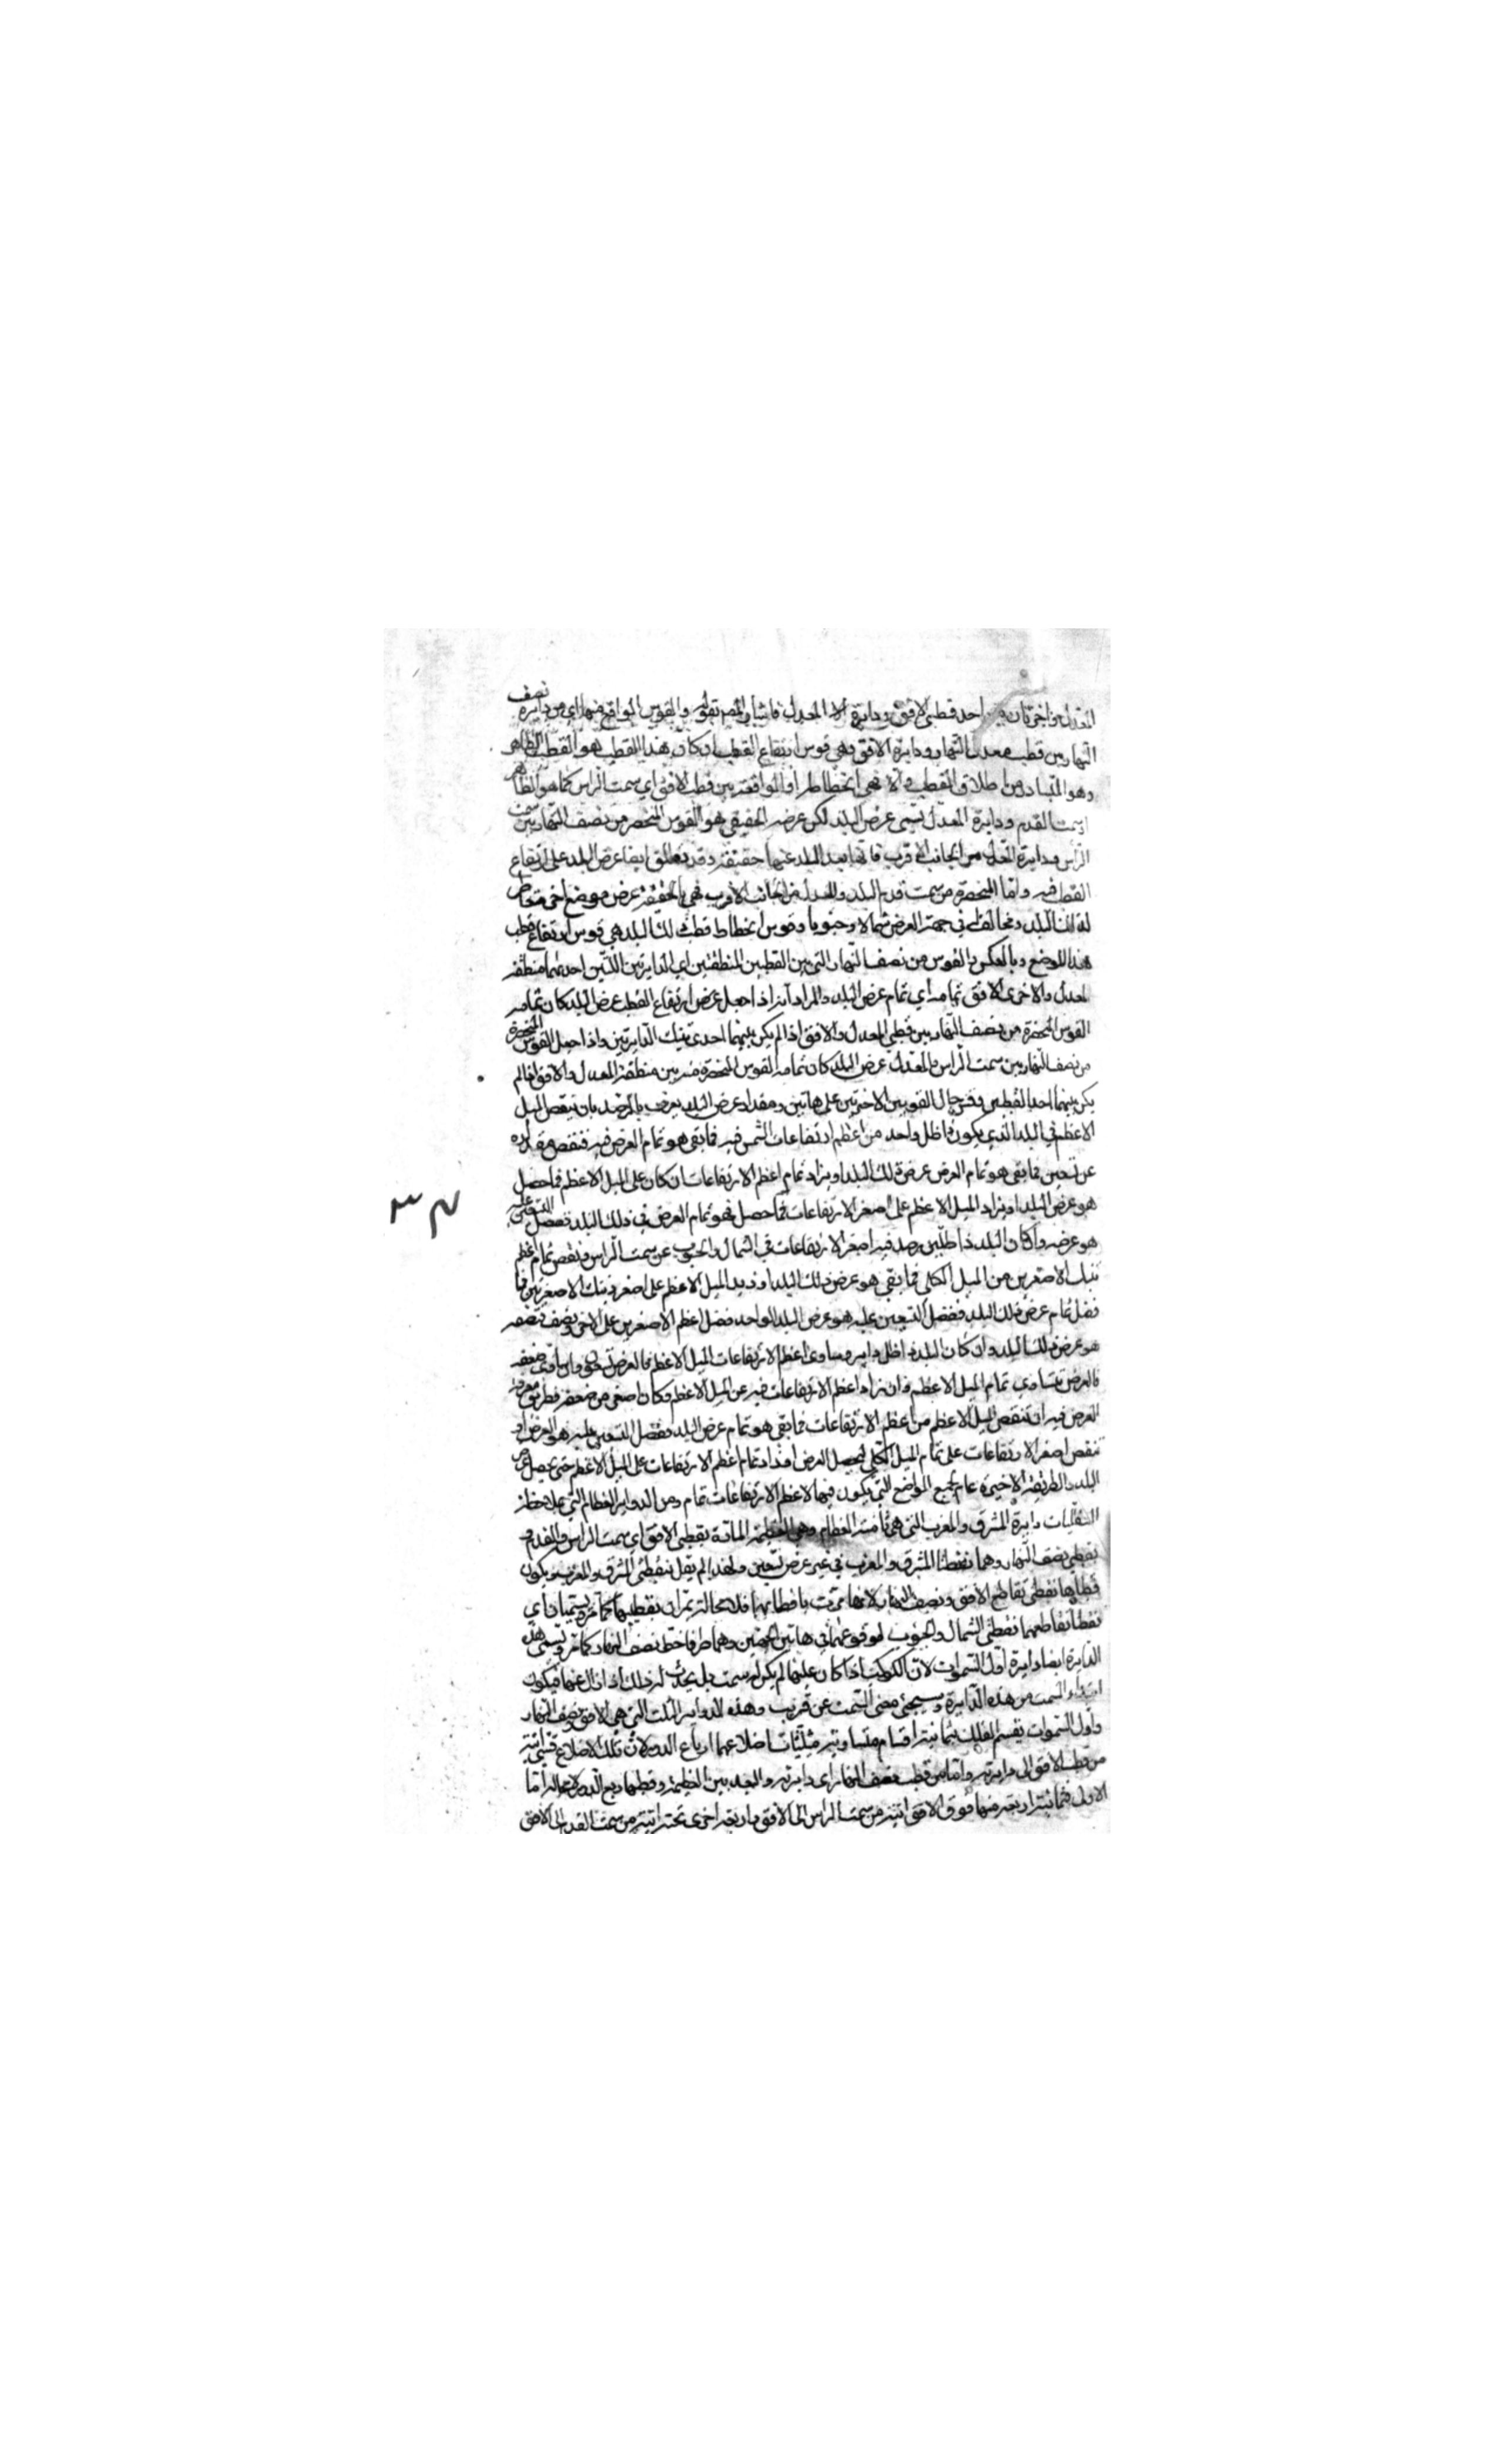 المعدل واخريان بين احد قطبي الافق ودايرة المعدل فاشار المص بقوله والقوس الواقع فيها اي من دايرة نصف
النهار بين قطب معدل النهار ودايرة الافق وهي قوس ارتفاع القطب ان كان هذا القطب هو القطب الظاهر
وهو المتبادر من اطلاق القطب والا فهي انخطاطه او الواقعة بين قطب الافق اي سمت الراس كما هو الظاهر
او سمت القدم ودايرة المعدل تسمى عرض البلد لكن عرضه الحقيقي هو القوس المنحصر من نصف النهار بين سمت
الراس ودايرة المعدل من الجانب الاقرب فانها بعد البلد عنها حقيقة وقد يطلق ايضا عرض البلد على ارتفاع
القطب فيه واما المنحصرة من سمت قدم البلد والمعدل من الجانب الاقرب فهي بالحقيقة عرض موضع اخر مقاطر
لذلك البلد ومخالف له في جهة العرض شمالا وجنوبا وقوس انحطاط قطب ذلك البلد هي قوس ارتفاع قطب
هذا الموضع وبالعكس والقوس من نصف النهار التي بين القطبين المنطقتين اي الدايرتين اللتين احديهما منطقة
المعدل والاخرى الافق تمامه اي تمام عرض البلد والمراد انه اذا جعل عرض ارتفاع القطب عرض البلد كان تمامه
القوس المنحصرة من نصف النهار بين قطبي المعدل والافق اذا لم يكن بينهما احدى تينك الدايرتين واذا جعل القوس المنحصرة
من نصف النهار بين سمت الراس والمعدل عرض البلد كان تمامه القوس المنحصرة منه بين منطقة المعدل والافق اذا لم
يكن بينهما احد القطبين وقس حال القوسين الاخريين على هاتين ومقدار عرض البلد يعرف بالرصد بان ينقص الميل
الاعظم في البلد الذي يكون ذا ظل واحد من اعظم ارتفاعات الشمس فيه فما بقي هو تمام العرض فيه فتنقص مقداره
عن تسعين فما بقي هو تمام العرض عرض ذلك البلد او يزاد تمام اعظم الارتفاعات ان كان على الميل الاعظم فما حصل
هو عرض البلد او يزاد الميل الاعظم على اصغر الارتفاعات فما حصل فهو تمام العرض في ذلك البلد ففضل التسعين عليه
هو عرضه وان كان البلد ذا ظلين رصد فيه اصغر الارتفاعات في الشمال والجنوب عن سمت الراس ونقص تمام اعظم
تينك الاصغرين من الميل الكلي فما بقي هو عرض ذلك البلد او زيد الميل الاعظم على اصغر ذينك الاصغرين فما
فضل تمام عرض ذلك البلد ففضل التسعين عليه هو عرض البلد الواحد فضل اعظم الاصغرين على الاخر ونصف نصفه
هو عرض ذلك البلد وان كان البلد ذا ظل داير وساوى اعظم الارتفاعات الميل الاعظم فالعرض تسعون وان ساوى ضعفه
فالعرض يتساوي تمام الميل الاعظم وان زاد اعظم الارتفاعات فيه عن الميل الاعظم وكان اصغر من ضعفه فطريق معرفة
العرض فيه ان تنقص الميل الاعظم من اعظم الارتفاعات فما بقي هو تمام عرض البلد ففضل التسعين عليه هو العرض او
تنقص اصغر الارتفاعات على تمام الميل الكلي ليحصل العرض او زاد تمام اعظم الارتفاعات على الميل الاعظم حتى يحصل عرض
البلد والطريقة الاخيرة عام لجميع المواضع التي يكون فيها لاعظم الارتفاعات تمام ومن الدواير العظام التي
السفليات دايرة المشرق والمغرب التي هي ثامنة العظام وهي العظيمة المارة بقطبي الافق اي سمت الراس والقدم و
بقطبي نصف النهار وهما نقطتا المشرق والمغرب في غير عرض تسعين ولهذا لم يقل نقطتي المشرق والمغرب ويكون
قطباها نقطتي تقاطع الافق ونصف النهار لانها مرت باقطابها فلا محالة تمران بقطبيها كما مر ويسميان اي
نقطتا تقاطعهما نقطتي الشمال والجنوب لوقوعهما في هاتين الجهتين وهما طرفا خط نصف النهار كما مر وتسمى هذه
الدايرة ايضا دايرة اول السموات لان الكوكب اذا كان عليها لم يكن له سمت بل يحدث له ذلك اذا زال عنها فيكون
ابتداء السمت من هذه الدايرة وسيجئ معنى السمت عن قريب وهذه الدواير الثلث التي هي الافق ونصف النهار
واول السموات يقسم الفلك بثمانية اقسام متساوية مثلثات اضلاعها ارباع الدور لان تلك الاضلاع قسي اتية
من قطب الافق الى دايرته واما من قطب نصف النهار اي دايرته والبعد بين العظيمة وقطبها ربع الدور لا محالة اما
الاولى فثمانية اربعة منها فوق الافق اتية من سمت الراس الى الافق واربعة اخرى تحته اتية من سمت القدم الى الافق